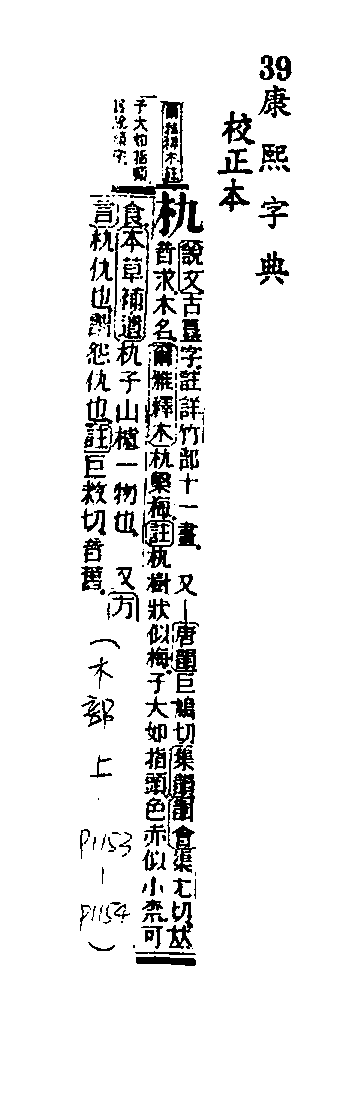 39
康熙字典
校正本
朹
說文古簋字註詳竹部十一畫 又—唐韻巨鳩切集韻韻會渠尤切𠀤
音求木名爾雅釋木朹檕梅註朹樹狀似梅子大如指頭色赤似小柰可
食本草補遺朹子山樝一物也 又方
言朹仇也謂怨仇也註巨救切音舊
(木部上.
P1153
—
P1154)